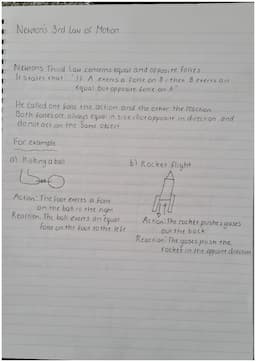 Newton's 3rd Law of Motion
Newtons Third Law concerns equal and opposite forces
It states that "If A exerts a force on B then B exerts an
equal but opposite force on A"
He called one force the action and the other the reaction
Both forces are always equal in size but opposite in direction and
do not act on the same object
For example
a) Kicking a ball
b) Rocket flight
Action: The foot exerts a force
on the ball to the right
Reaction: The ball exerts an equal
force on the foot to the left
Action: The rocket pushes gases
out the back
Reaction: The gases push the
rocket in the opposite direction